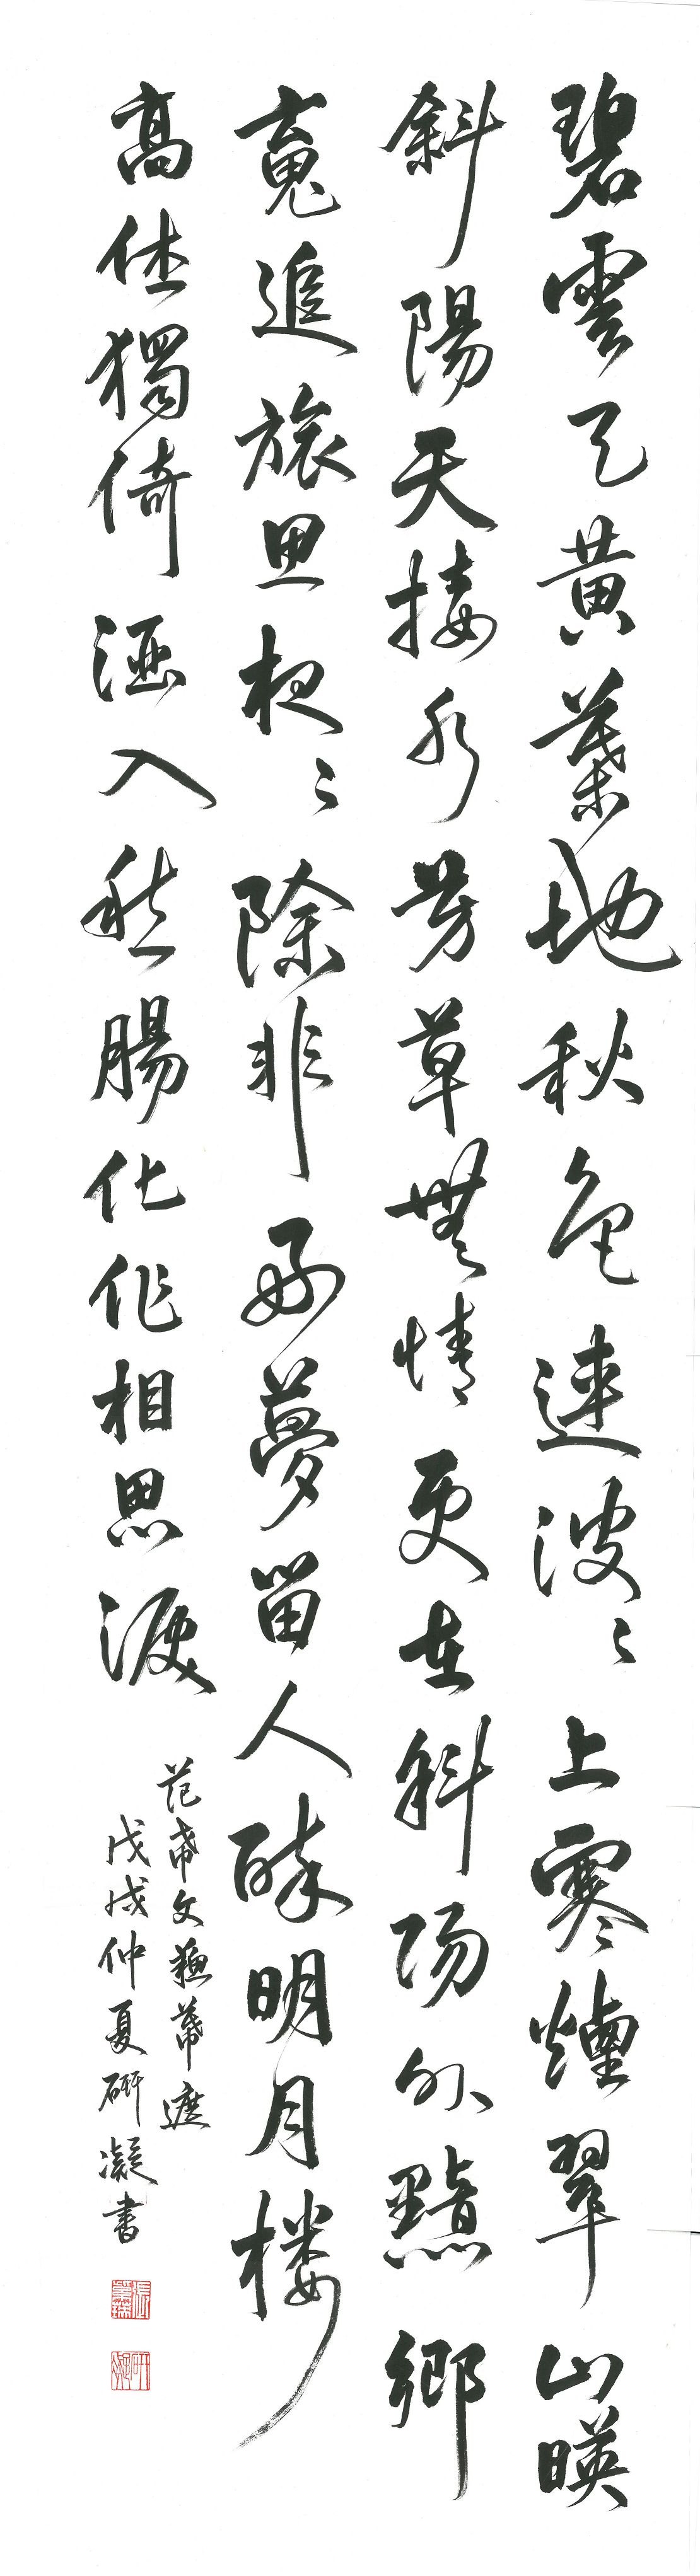 碧雲天黃葉地秋色連波〻上寒煙翠山暎
斜陽天接水芳草無情更在斜陽外黯鄉
䰟追旅思夜〻除非好夢留人睡明月樓
高休獨倚酒入愁腸化作相思淚
范希文蘇幕遮
戊戌仲夏研凝書